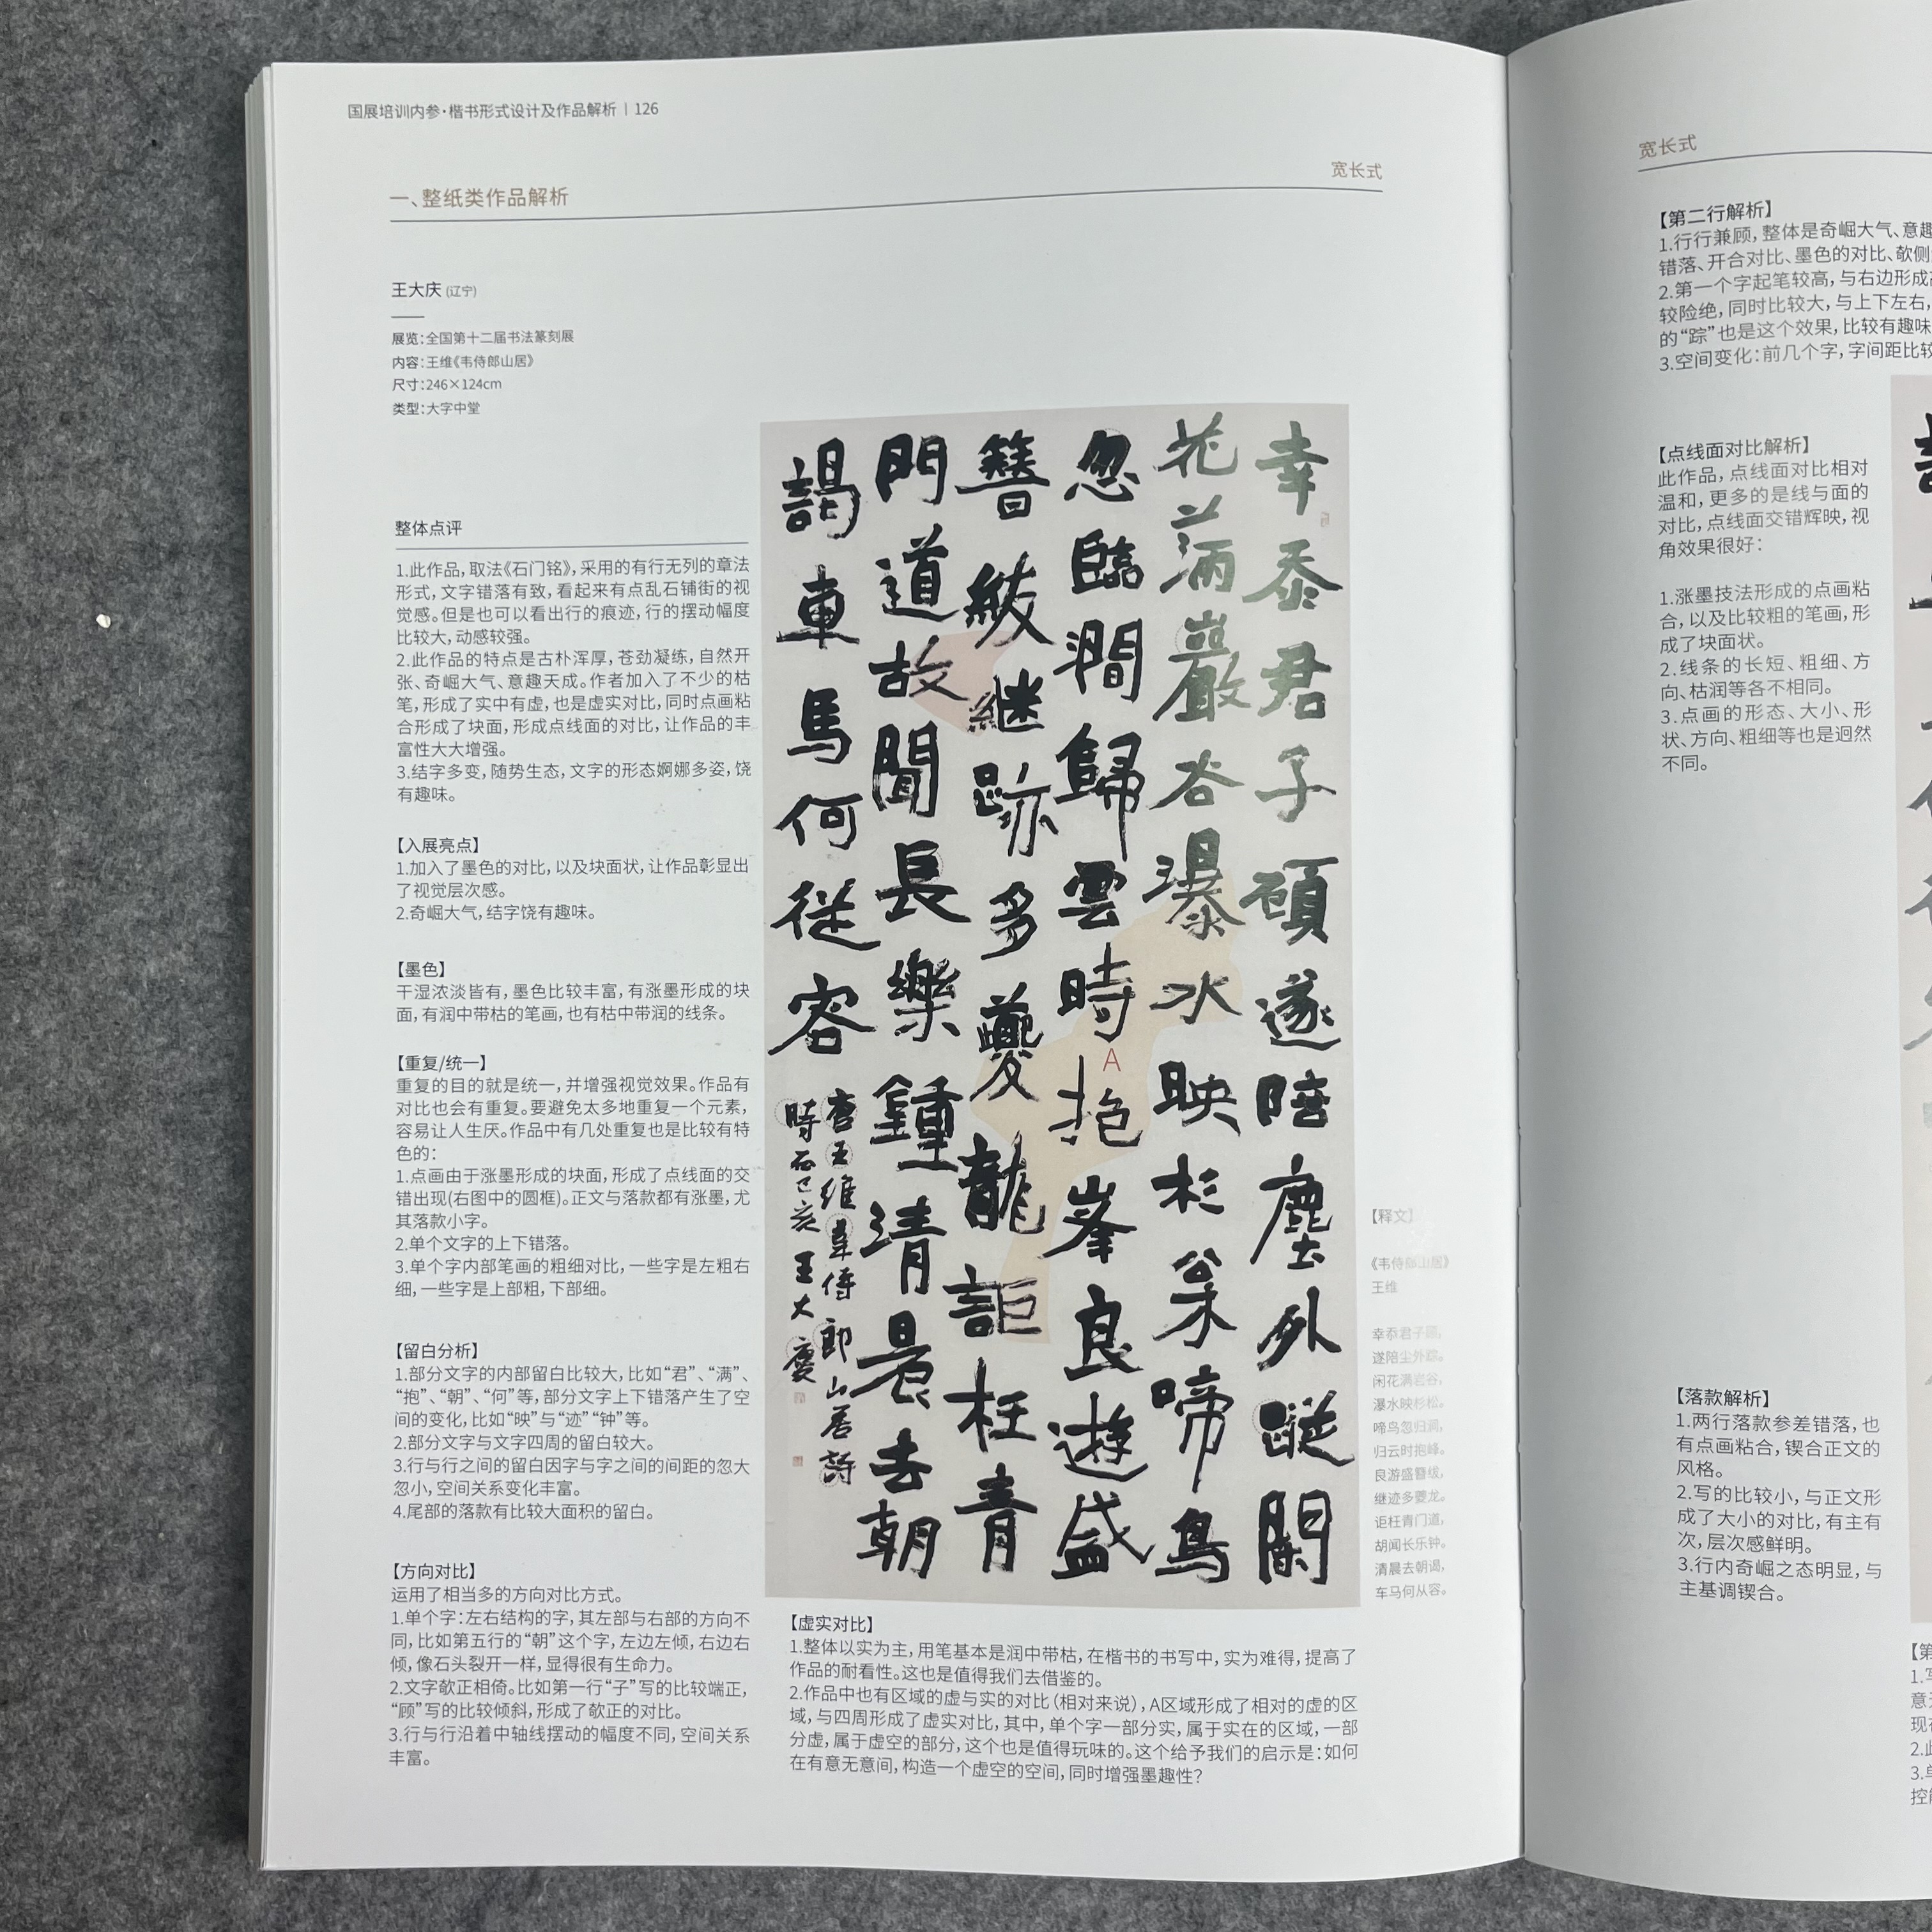 国展培训内参·楷书形式设计及作品解析 | 126
一、整纸类作品解析
宽长式
王大庆 (辽宁)
展览：全国第十二届书法篆刻展
内容：王维《韦侍郎山居》
尺寸：246×124cm
类型：大字中堂
整体点评
1.此作品，取法《石门铭》，采用的有行无列的章法
形式，文字错落有致，看起来有点乱石铺街的视
觉感。但是也可以看出行的痕迹，行的摆动幅度
比较大，动感较强。
2.此作品的特点是古朴浑厚，苍劲凝练，自然开
张、奇崛大气、意趣天成。作者加入了不少的枯
笔，形成了实中有虚，也是虚实对比，同时点画粘
合形成了块面，形成点线面的对比，让作品的丰
富性大大增强。
3.结字多变，随势生态，文字的形态婀娜多姿，饶
有趣味。
【入展亮点】
1.加入了墨色的对比，以及块面状，让作品彰显出
了视觉层次感。
2.奇崛大气，结字饶有趣味。
【墨色】
干湿浓淡皆有，墨色比较丰富，有涨墨形成的块
面，有润中带枯的笔画，也有枯中带润的线条。
【重复/统一】
重复的目的就是统一，并增强视觉效果。作品有
对比也会有重复。要避免太多地重复一个元素，
容易让人生厌。作品中有几处重复也是比较有特
色的：
1.点画由于涨墨形成的块面，形成了点线面的交
错出现(右图中的圆框)。正文与落款都有涨墨，尤
其落款小字。
2.单个文字的上下错落。
3.单个字内部笔画的粗细对比，一些字是左粗右
细，一些字是上部粗，下部细。
【留白分析】
1.部分文字的内部留白比较大，比如“君”、“满”、
“抱”、“朝”、“何”等，部分文字上下错落产生了空
间的变化，比如“映”与“迹”“钟”等。
2.部分文字与文字四周的留白较大。
3.行与行之间的留白因字与字之间的间距的忽大
忽小，空间关系变化丰富。
4.尾部的落款有比较大面积的留白。
【方向对比】
运用了相当多的方向对比方式。
1.单个字：左右结构的字，其左部与右部的方向不
同，比如第五行的“朝”这个字，左边左倾，右边右
倾，像石头裂开一样，显得很有生命力。
2.文字欹正相倚。比如第一行“子”写的比较端正，
“顾”写的比较倾斜，形成了欹正的对比。
3.行与行沿着中轴线摆动的幅度不同，空间关系
丰富。
幸忝君子頋遂陪塵外蹤閑
花满巖谷瀑水映杉枀啼鳥
忽臨澗歸雲時抱峯良遊盛
簪紱継跡多夔龍詎枉青
門道故聞長樂鍾清晨去朝
謁車馬何從容
唐王維韋侍郎山居詩
時在己亥王大慶
A
【释文】
《韦侍郎山居》
王维
幸忝君子顾，
遂陪尘外踪。
闲花满岩谷，
瀑水映杉松。
啼鸟忽归涧，
归云时抱峰。
良游盛簪绂，
继迹多夔龙。
讵枉青门道，
胡闻长乐钟。
清晨去朝谒，
车马何从容。
【虚实对比】
1.整体以实为主，用笔基本是润中带枯，在楷书的书写中，实为难得，提高了
作品的耐看性。这也是值得我们去借鉴的。
2.作品中也有区域的虚与实的对比（相对来说），A区域形成了相对的虚的区
域，与四周形成了虚实对比，其中，单个字一部分实，属于实在的区域，一部
分虚，属于虚空的部分，这个也是值得玩味的。这个给予我们的启示是：如何
在有意无意间，构造一个虚空的空间，同时增强墨趣性？
宽长式
【第二行解析】
1.行行兼顾，整体是奇崛大气、意趣
错落、开合对比、墨色的对比、欹侧
2.第一个字起笔较高，与右边形成
较险绝，同时比较大，与上下左右，
的“踪”也是这个效果，比较有趣味
3.空间变化：前几个字，字间距比较
【点线面对比解析】
此作品，点线面对比相对
温和，更多的是线与面的
对比，点线面交错辉映，视
角效果很好：
1.涨墨技法形成的点画粘
合，以及比较粗的笔画，形
成了块面状。
2.线条的长短、粗细、方
向、枯润等各不相同。
3.点画的形态、大小、形
状、方向、粗细等也是迥然
不同。
【落款解析】
1.两行落款参差错落，也
有点画粘合，锲合正文的
风格。
2.写的比较小，与正文形
成了大小的对比，有主有
次，层次感鲜明。
3.行内奇崛之态明显，与
主基调锲合。
【第
1.写
意
现在
2.此
3.单
控